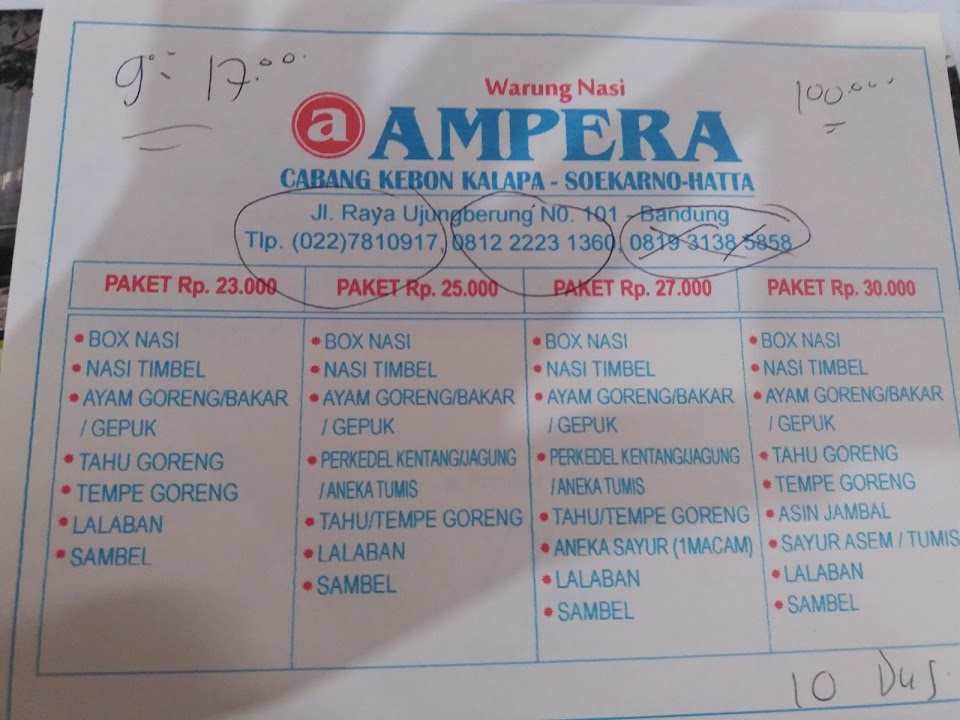 9°- 17.00
100.000
Warung Nasi
a AMPERA
CABANG KEBON KALAPA - SOEKARNO-HATTA
Jl. Raya Ujungberung N0. 101 - Bandung
Tlp. (022)7810917, 0812 2223 1360, 0819 3138 5858
PAKET Rp. 23.000
BOX NASI
NASI TIMBEL
AYAM GORENG/BAKAR
/ GEPUK
TAHU GORENG
TEMPE GORENG
LALABAN
SAMBEL
PAKET Rp. 25.000
BOX NASI
NASI TIMBEL
AYAM GORENG/BAKAR
/ GEPUK
PERKEDEL KENTANG/JAGUNG
/ANEKA TUMIS
TAHU/TEMPE GORENG
LALABAN
SAMBEL
PAKET Rp. 27.000
BOX NASI
NASI TIMBEL
AYAM GORENG/BAKAR
/ GEPUK
PERKEDEL KENTANG/JAGUNG
/ANEKA TUMIS
TAHU/TEMPE GORENG
ANEKA SAYUR (1MACAM)
LALABAN
SAMBEL
PAKET Rp. 30.000
BOX NASI
NASI TIMBEL
AYAM GORENG/BAKAR
/ GEPUK
TAHU GORENG
TEMPE GORENG
ASIN JAMBAL
SAYUR ASEM / TUMIS
LALABAN
SAMBEL
10 Dus.